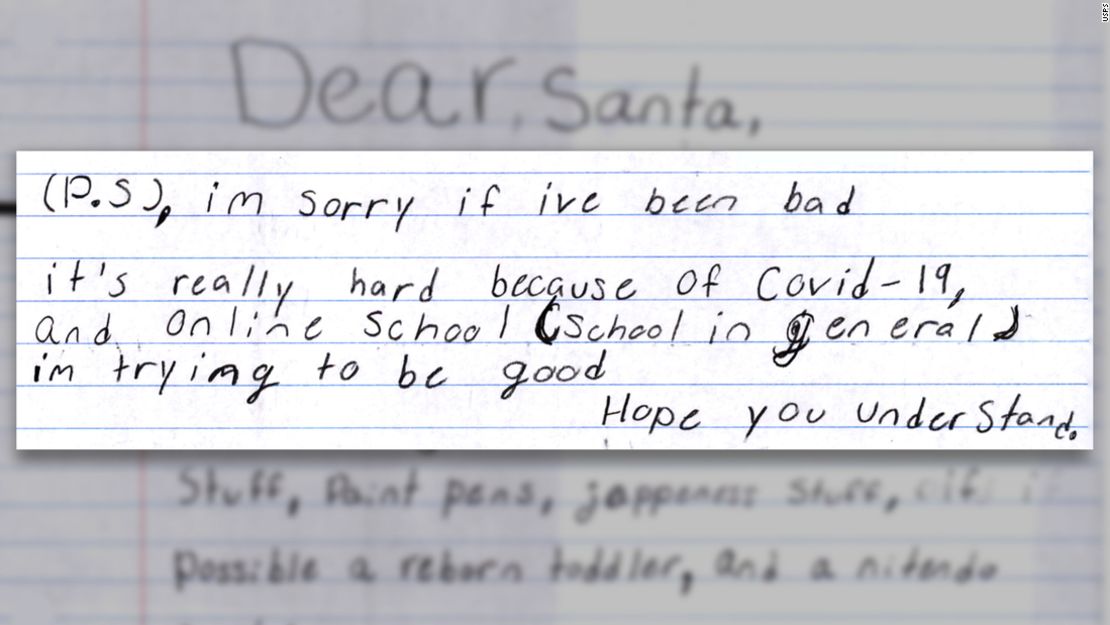 Dear, Santa,
(P.S), im sorry if ive been bad
it's really hard because of Covid-19,
and online school (School in general)
im trying to be good
Hope you understand.
Stuff, Paint pens, jappeness stuff, if
possible a reborn toddler, and a nitendo
USPS